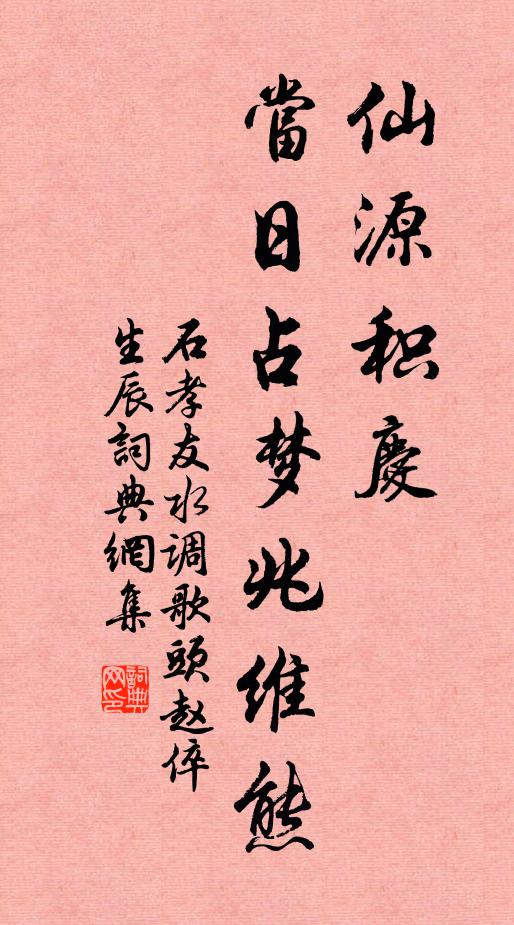 仙源积慶
當日占梦兆维熊
石孝友水调歌頭赵倅
生辰詞典網集
詞典
网印